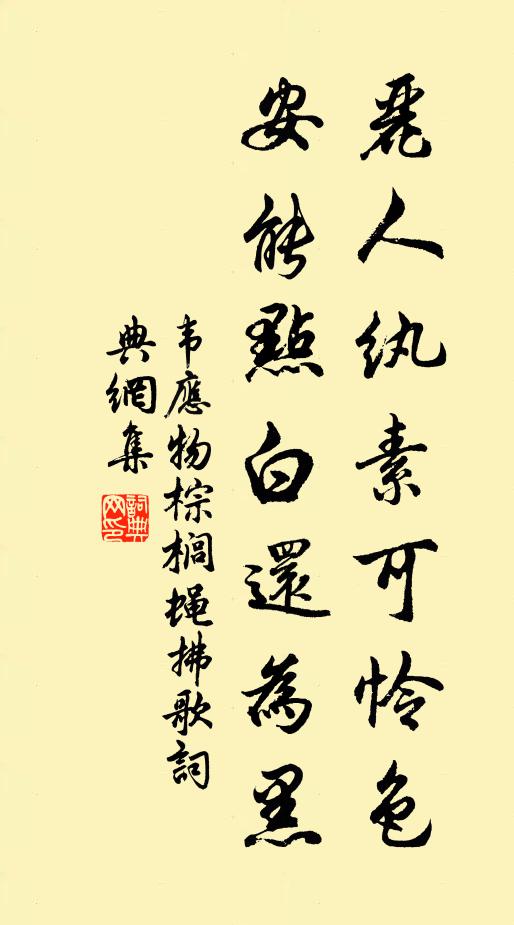 麗人紈素可怜色
安能點白還為黑
韦應物棕榈蝇拂歌詞
典網集
詞典網印